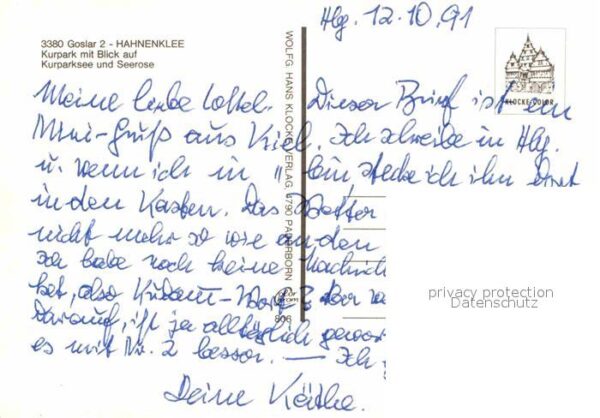 Hbg. 12.10.91
3380 Goslar 2 - HAHNENKLEE
Kurpark mit Blick auf
Kurparksee und Seerose
WOLFG. HANS KLOCKE VERLAG, 4790 PADERBORN
KLOCKE-COLOR
806
Meine liebe Lottel. Dieser Brief ist ein
Mini-Gruß aus Kiel. Ich schreibe in Hbg.
u. wenn ich in " bin, stecke ich ihn dort
in den Kasten. Das Wetter
nicht mehr so wie an den
Ich habe noch keine Nachricht
hat, also
darauf, ist ja alltäglich
es mit Nr. 2 besser. — Ich
Deine Käthe.
privacy protection
Datenschutz